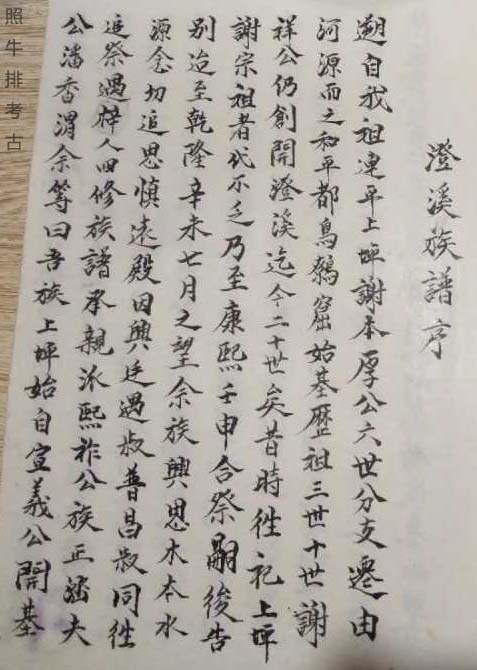 澄溪族譜序
朔自我祖連平上坪謝本厚公六世分支遷由
河源而之和平都鳥鵝窟始基歷祖三世十世謝
祥公仍創開澄溪迄今二十世矣昔時徃祀上坪
謝宗祖者代不乏乃至康熙壬申合祭嗣後告
別迨至乾隆辛未七月之望余族興思木本水
源念切追思慎遠殿因興廷遇叔普昌叔同徃
追祭遇梓人四修族譜承親派熙祚公族正潘夫
公潘香渭余等曰吾族上坪始自宣義公開基
照牛排考古